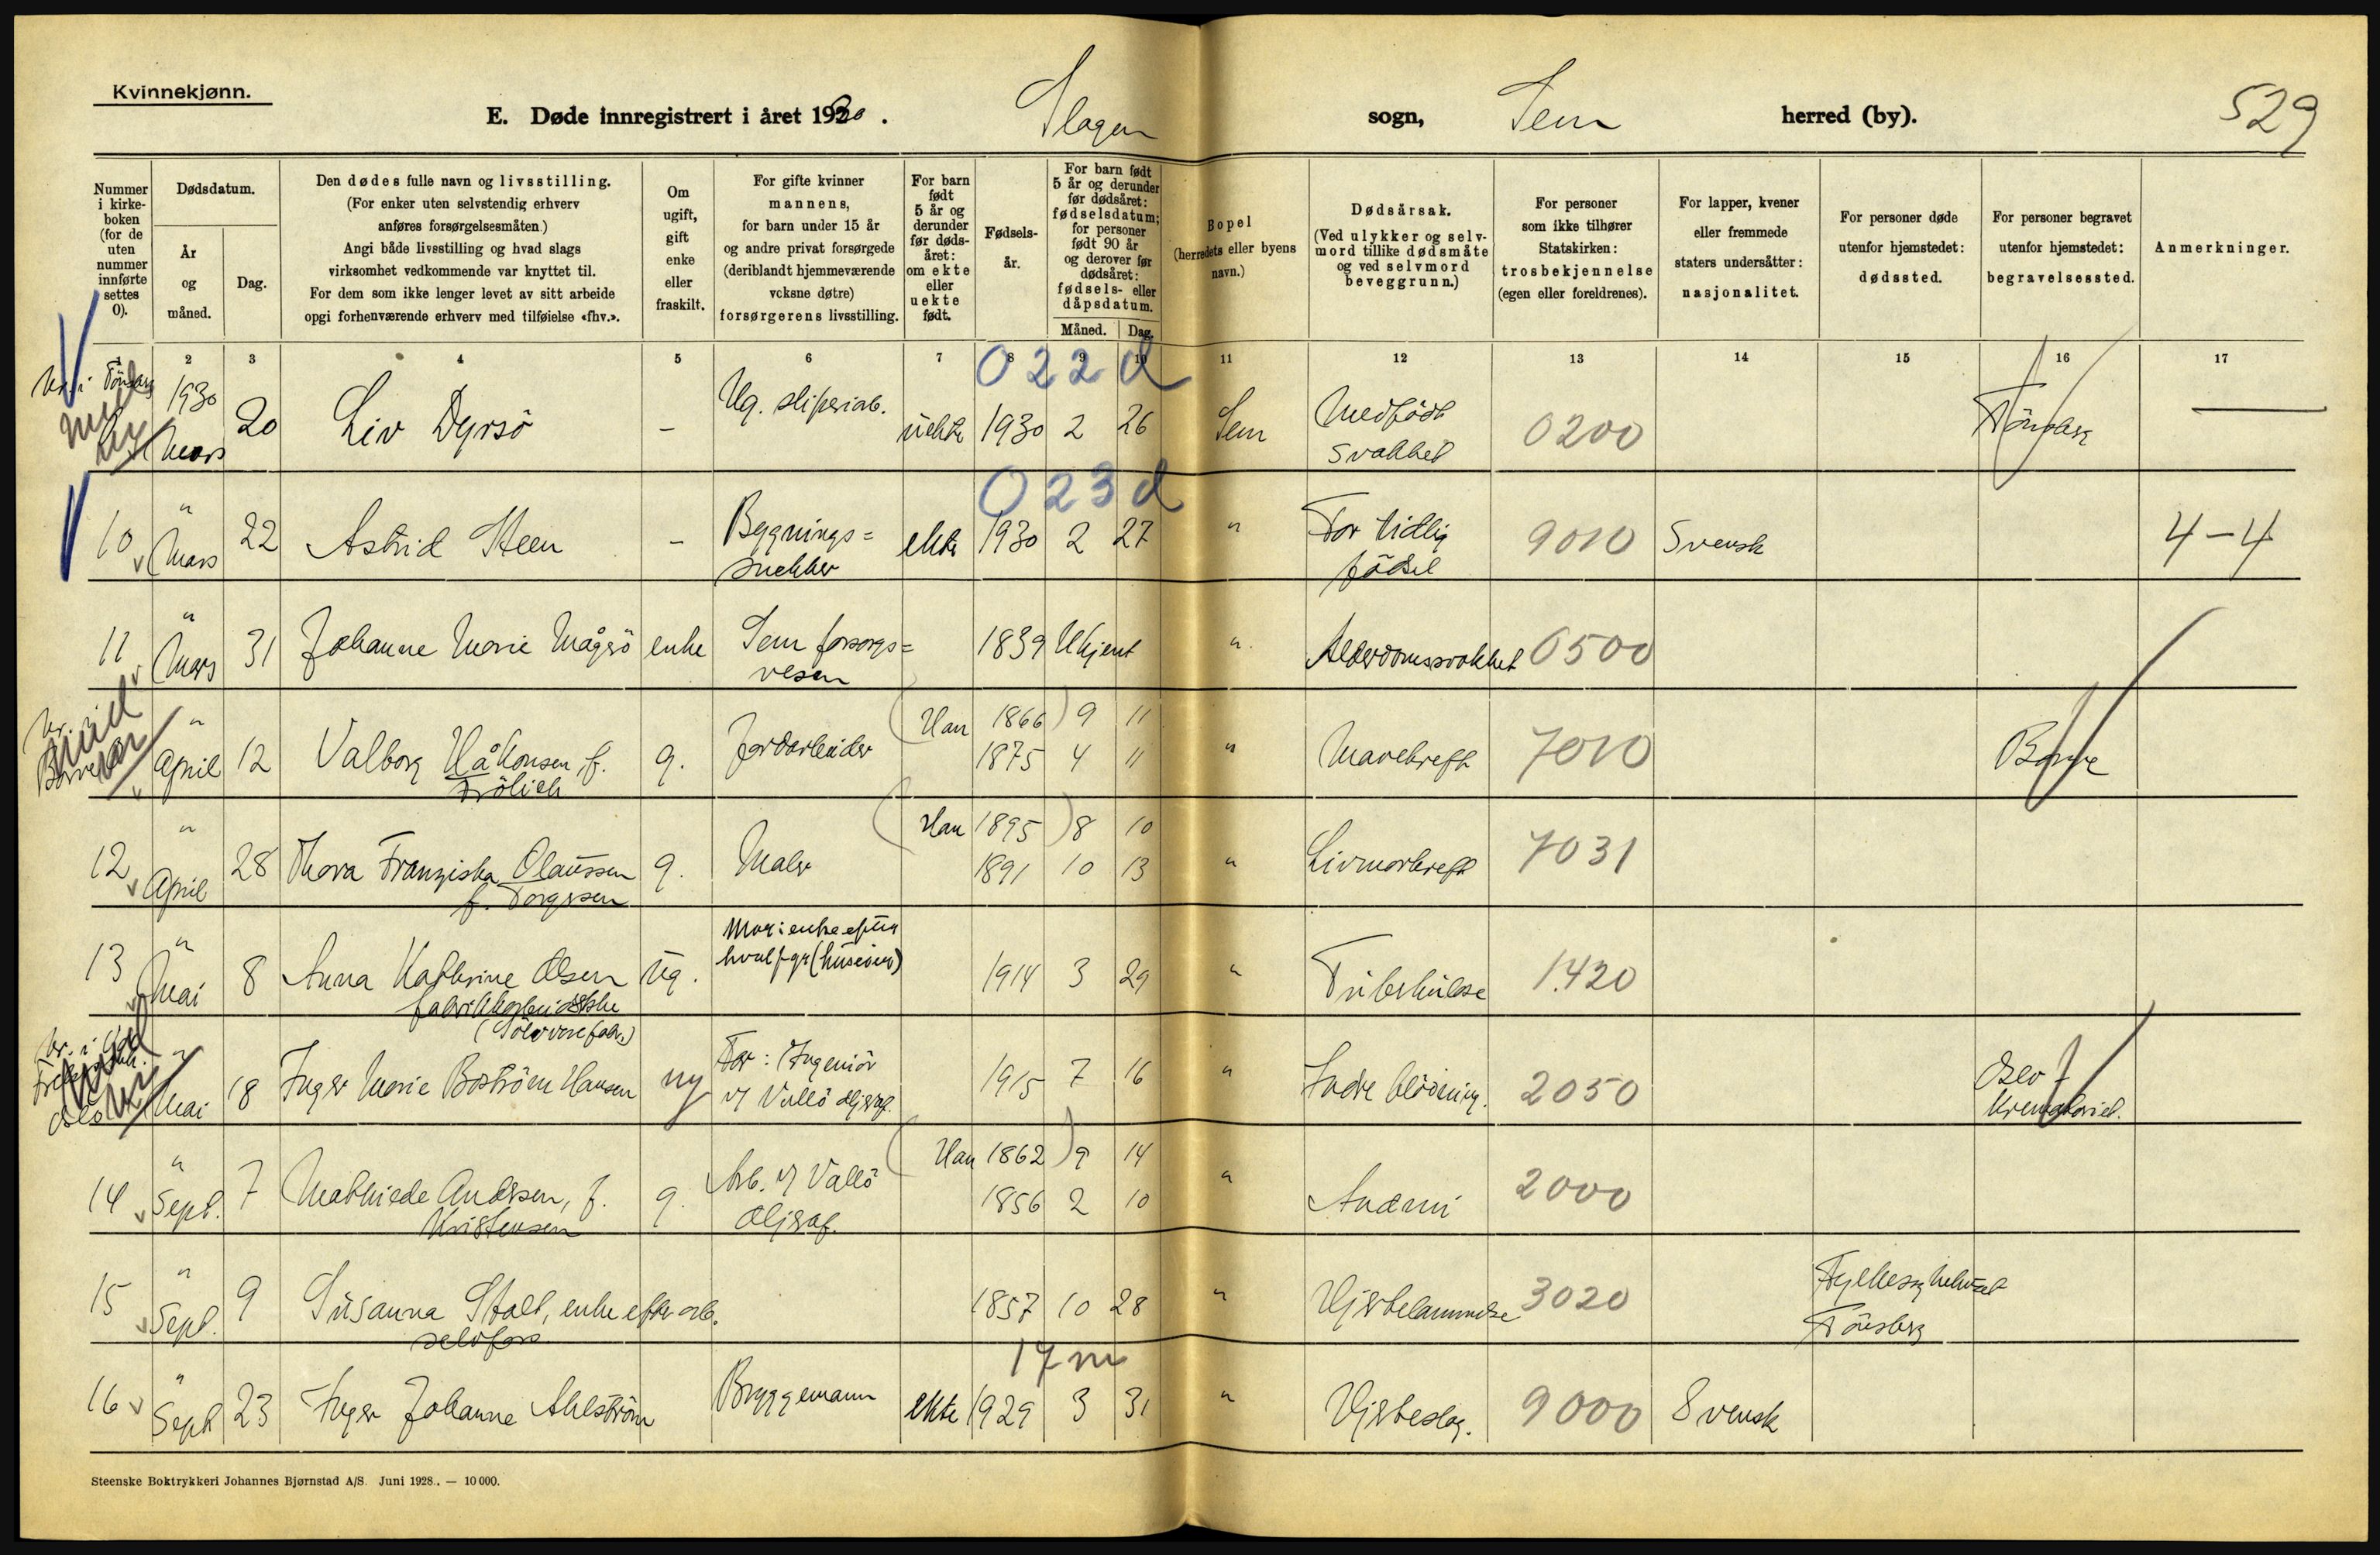 Kvinnekjønn.
E. Døde innregistrert i året 1930. Slagen sogn, Sem herred (by). 529
Nummer i kirkeboken (for de uten nummer innførte settes 0).
Dødsdatum.
År og måned.
Dag.
Den dødes fulle navn og livsstilling.
(For enker uten selvstendig erhverv
anføres forsørgelsesmåten.)
Angi både livsstilling og hvad slags
virksomhet vedkommende var knyttet til.
For dem som ikke lenger levet av sitt arbeide
opgi forhenværende erhverv med tilføielse «fhv.».
Om ugift, gift enke eller fraskilt.
For gifte kvinner
mannens,
for barn under 15 år
og andre privat forsørgede
(deriblandt hjemmeværende
voksne døtre)
forsørgerens livsstilling.
For barn født 5 år og derunder før dødsåret: om ekte eller uekte født.
Fødselsår.
For barn født 5 år og derunder før dødsåret: fødselsdatum; for personer født 90 år og derover før dødsåret: fødsels- eller dåpsdatum.
Måned. Dag.
Bopel
(herredets eller byens
navn.)
Dødsårsak.
(Ved ulykker og selvmord tillike dødsmåte
og ved selvmord
beveggrunn.)
For personer
som ikke tilhører
Statskirken:
trosbekjennelse
(egen eller foreldrenes).
For lapper, kvener
eller fremmede
staters undersåtter:
nasjonalitet.
For personer døde
utenfor hjemstedet:
dødssted.
For personer begravet
utenfor hjemstedet:
begravelsessted.
Anmerkninger.
1 2 3 4 5 6 7 8 9 10 11 12 13 14 15 16 17
022d
1930 Mars 20 Liv Dyrsö - Ug. sliperiarb. uekte 1930 2 26 Sem Medfödt svakhet 0200 Tönsberg —
023d
10 " Mars 22 Astrid Steen - Bygningssnekker ekte 1930 2 27 " For tidlig födsel 9010 Svensk 4-4
11 " Mars 31 Johanne Marie Mågerö enke Sem forsorgs= vesen 1839 Ukjent " Alderdomssvakhet 0500
(Han 1866) 9 11
" April 12 Valborg Håkonsen, f. Frölich g. Jordarbeider 1875 4 11 " Mavekreft 7010 Borre
(Han 1895) 8 10
12 " April 28 Thora Franziska Olaussen f. Torgersen g. Maler 1891 10 13 " Livmorkreft 7031
13 " Mai 8 Anna Kathrine Olsen fabrikkarbeiderske (Sölvvarefabr.) ug. Mor: enke efter hvalfgr (huseier) 1914 3 29 " Tuberkulose 1420
" Mai 18 Inger Marie Boström Hansen ug Far: Ingeniör v/ Vallö oljeraf. 1915 7 16 " Indre blödning. 2050 Oslo Krematoriet.
(Han 1862) 9 14
14 " Sept. 7 Mathilde Andersen, f. Kristensen g. Arb. v/ Vallö Oljeraf. 1856 2 10 " Anemi 2000
15 " Sept. 9 Susanna Stalt, enke efter arb. selvfors. 1857 10 28 " Hjertelammelse 3020 Fylkessykehuset Tönsberg
17 m
16 " Sept 23 Inger Johanne Ahlström Bryggemann ekte 1929 3 31 " Hjerteslag. 9000 Svensk
Steenske Boktrykkeri Johannes Bjørnstad A/S. Juni 1928. — 10 000.